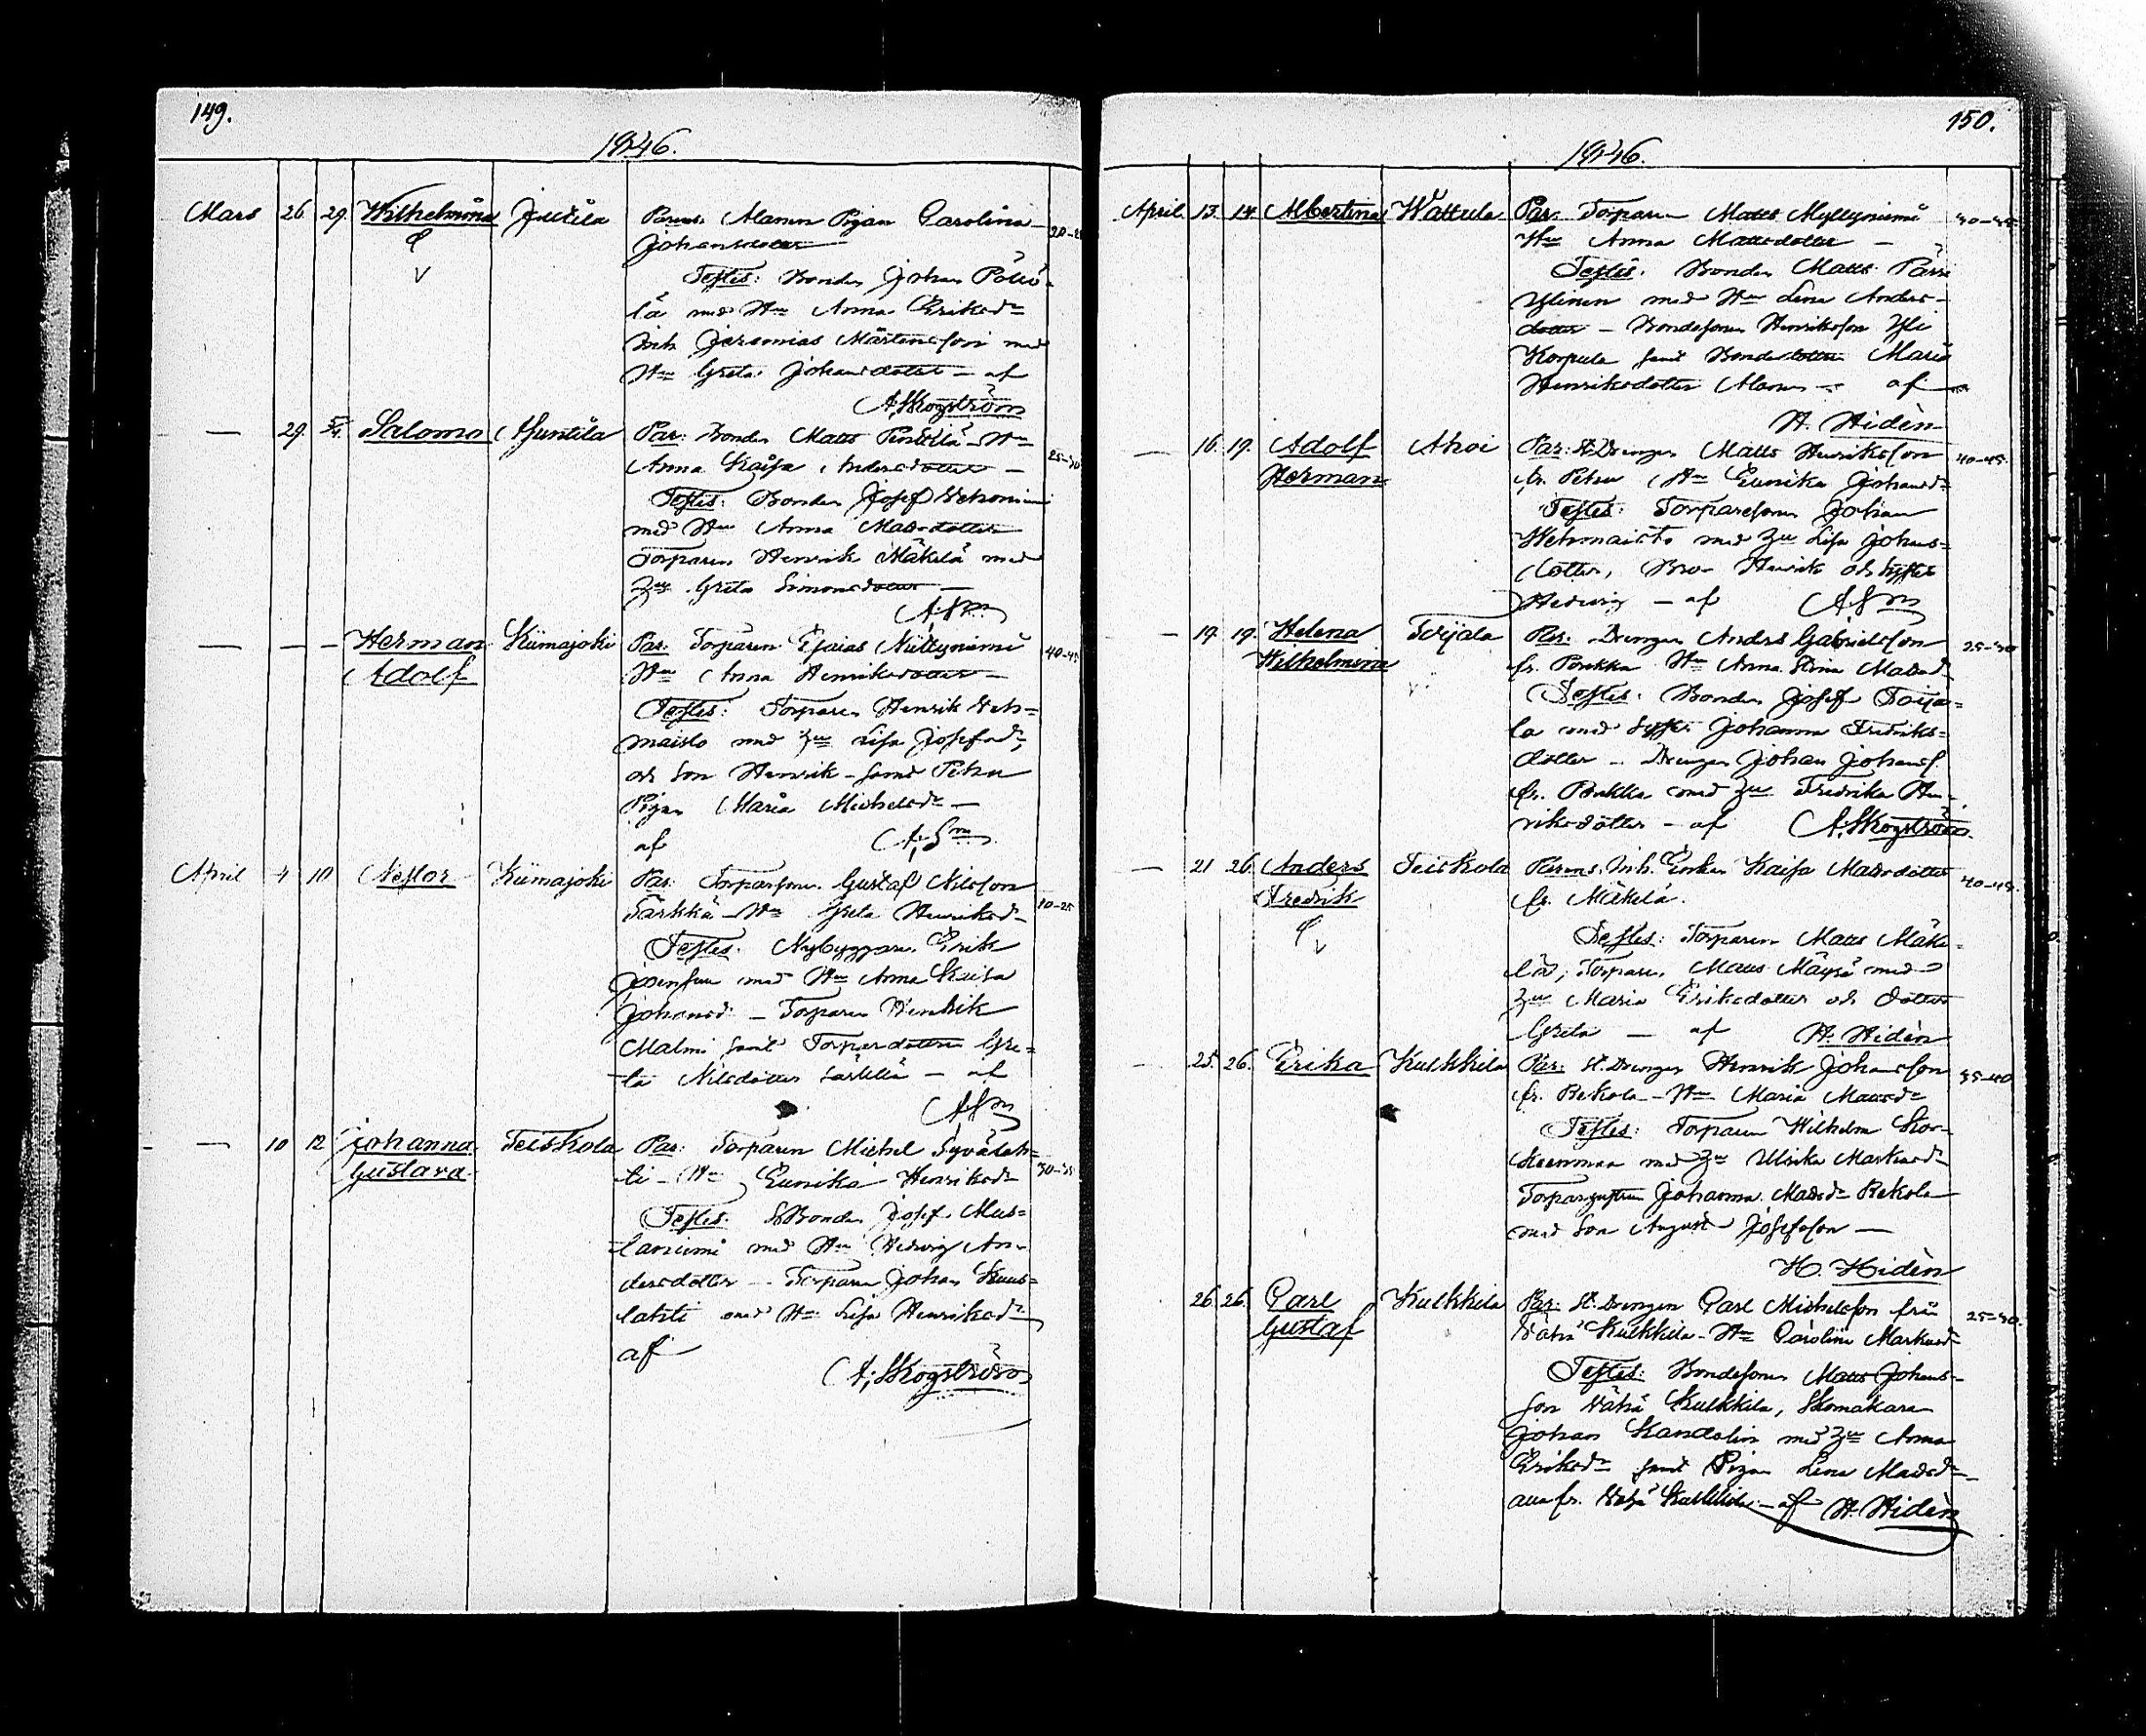 149.
1846.
Mars 26. 29. Wilhelmina Juutila Parens. Alamm Pigan Carolina
Johansdotter 20-25
Testes: Bonden Johan Pöllö-
lä med Hu Anna Eriksdr
Inh Jeremias Mårtensson med
Hu Greta Johansdotter – af
A. Skogström
— 29. 5/4. Salomo Huntila Par: Bonden Matts Penttilä – Hu
Anna Kaisa Andersdotter — 25-30
Testes: Bonden Josef Vehoniemi
med Hu Anna Matsdotter
Torparen Henrik Mäkelä med
Hu Greta Simonsdotter —
A. Sm
— — — Herman Kiimajoki Par: Torparen Esaias Niittyniemi 40-45
Adolf Hu Anna Henriksdotter —
Testes: Torparen Henrik Veh-
maisto med Hu Lisa Josefsdr,
och Son Henrik – samt Petru
Pigan Maria Michelsdr —
af A. Sm
April 4 10 Nestor Kiimajoki Par: Torparsonen Gustaf Nilsson
Särkkä – Hu Greta Henriksdr 20-25
Testes: Nybyggaren Erik
med Hu Anna Kaisa
Johansdr – Torparen Henrik
Malmi samt Torperdottern Gre-
ta Nilsdotter – af
A. Sm
— 10 12 Johanna Teiskola Par: Torparen Michel Syvälah-
Gustava ti – Hu Eunika Henriksdr 30-35
Testes: Bonden Josef Mus-
taniemi med Hu Hedvig An-
dersdotter – Torparen Johan Kuus-
lahti med Hu Lisa Henriksdr
af
A. Skogström
150.
1846.
April 13. 14. Albertina Wattula Par: Torparen Matts Myllyniemi 40-45
Hu Anna Mattsdotter —
Testes: Bonden Matts Pärri
Ylinen med Hu Lena Anders-
dotter – Bondesonen Henriksson Yli
Korpula samt Bondedottern Maria
Henriksdotter Alanen – af
H. Hidén
— 16. 19. Adolf Ahoi Par: St. Drengen Matts Henriksson 40-45.
Herman fr. Petru Hu Eunika Johansdr
Testes: Torparesonen Johan
Wehmaisto med Hu Lisa Johans-
dotter, Bror Henrik och Syster
Hedvig – af A. Sm
— 19. 19. Helena Toijala Par: Drengen Anders Gabrielsson 25-30
Wilhelmina fr. Porkka Hu Anna Stina Matsdr
Testes: Bonden Josef Toija-
la med Syster Johanna Fredriks-
dotter – Drengen Johan Johanss.
fr. med Hu Fredrika Hen-
riksdotter – af A. Skogström.
— 21 26. Anders Teiskola Parens. Inh. Enkan Kaisa Matsdotter 40-45.
Fredrik fr. Mäkelä.
Testes: Torparen Matts Mäke-
lä, Torparen Matts Mäyrä med
Hu Maria Eriksdotter och dotter
Greta — af H. Hidén
25. 26. Erika Kulkkila Par: St. Drengen Henrik Johansson 35-40
fr. Rekola – Hu Maria Mattsdr
Testes: Torparen Wilhelm Kor-
keenmaa med Hu Ulrika Marksdr
Torparhustrun Johanna Matsdr Rekola
med Son August Josefsson —
H. Hidén
26. 26. Carl Kulkkila Par: St. Drengen Carl Michelsson från 25-30.
Gustaf Vähä Kulkkila – Hu Carolina Marksdr
Testes: Bondesonen Matts Johans-
son Vähä Kulkkila, Skomakaren
Johan Kandolin med Hu Anna
Eriksdr samt Pigan Lena Matsdr
alla fr. Vähä Kulkkila – af H. Hidén